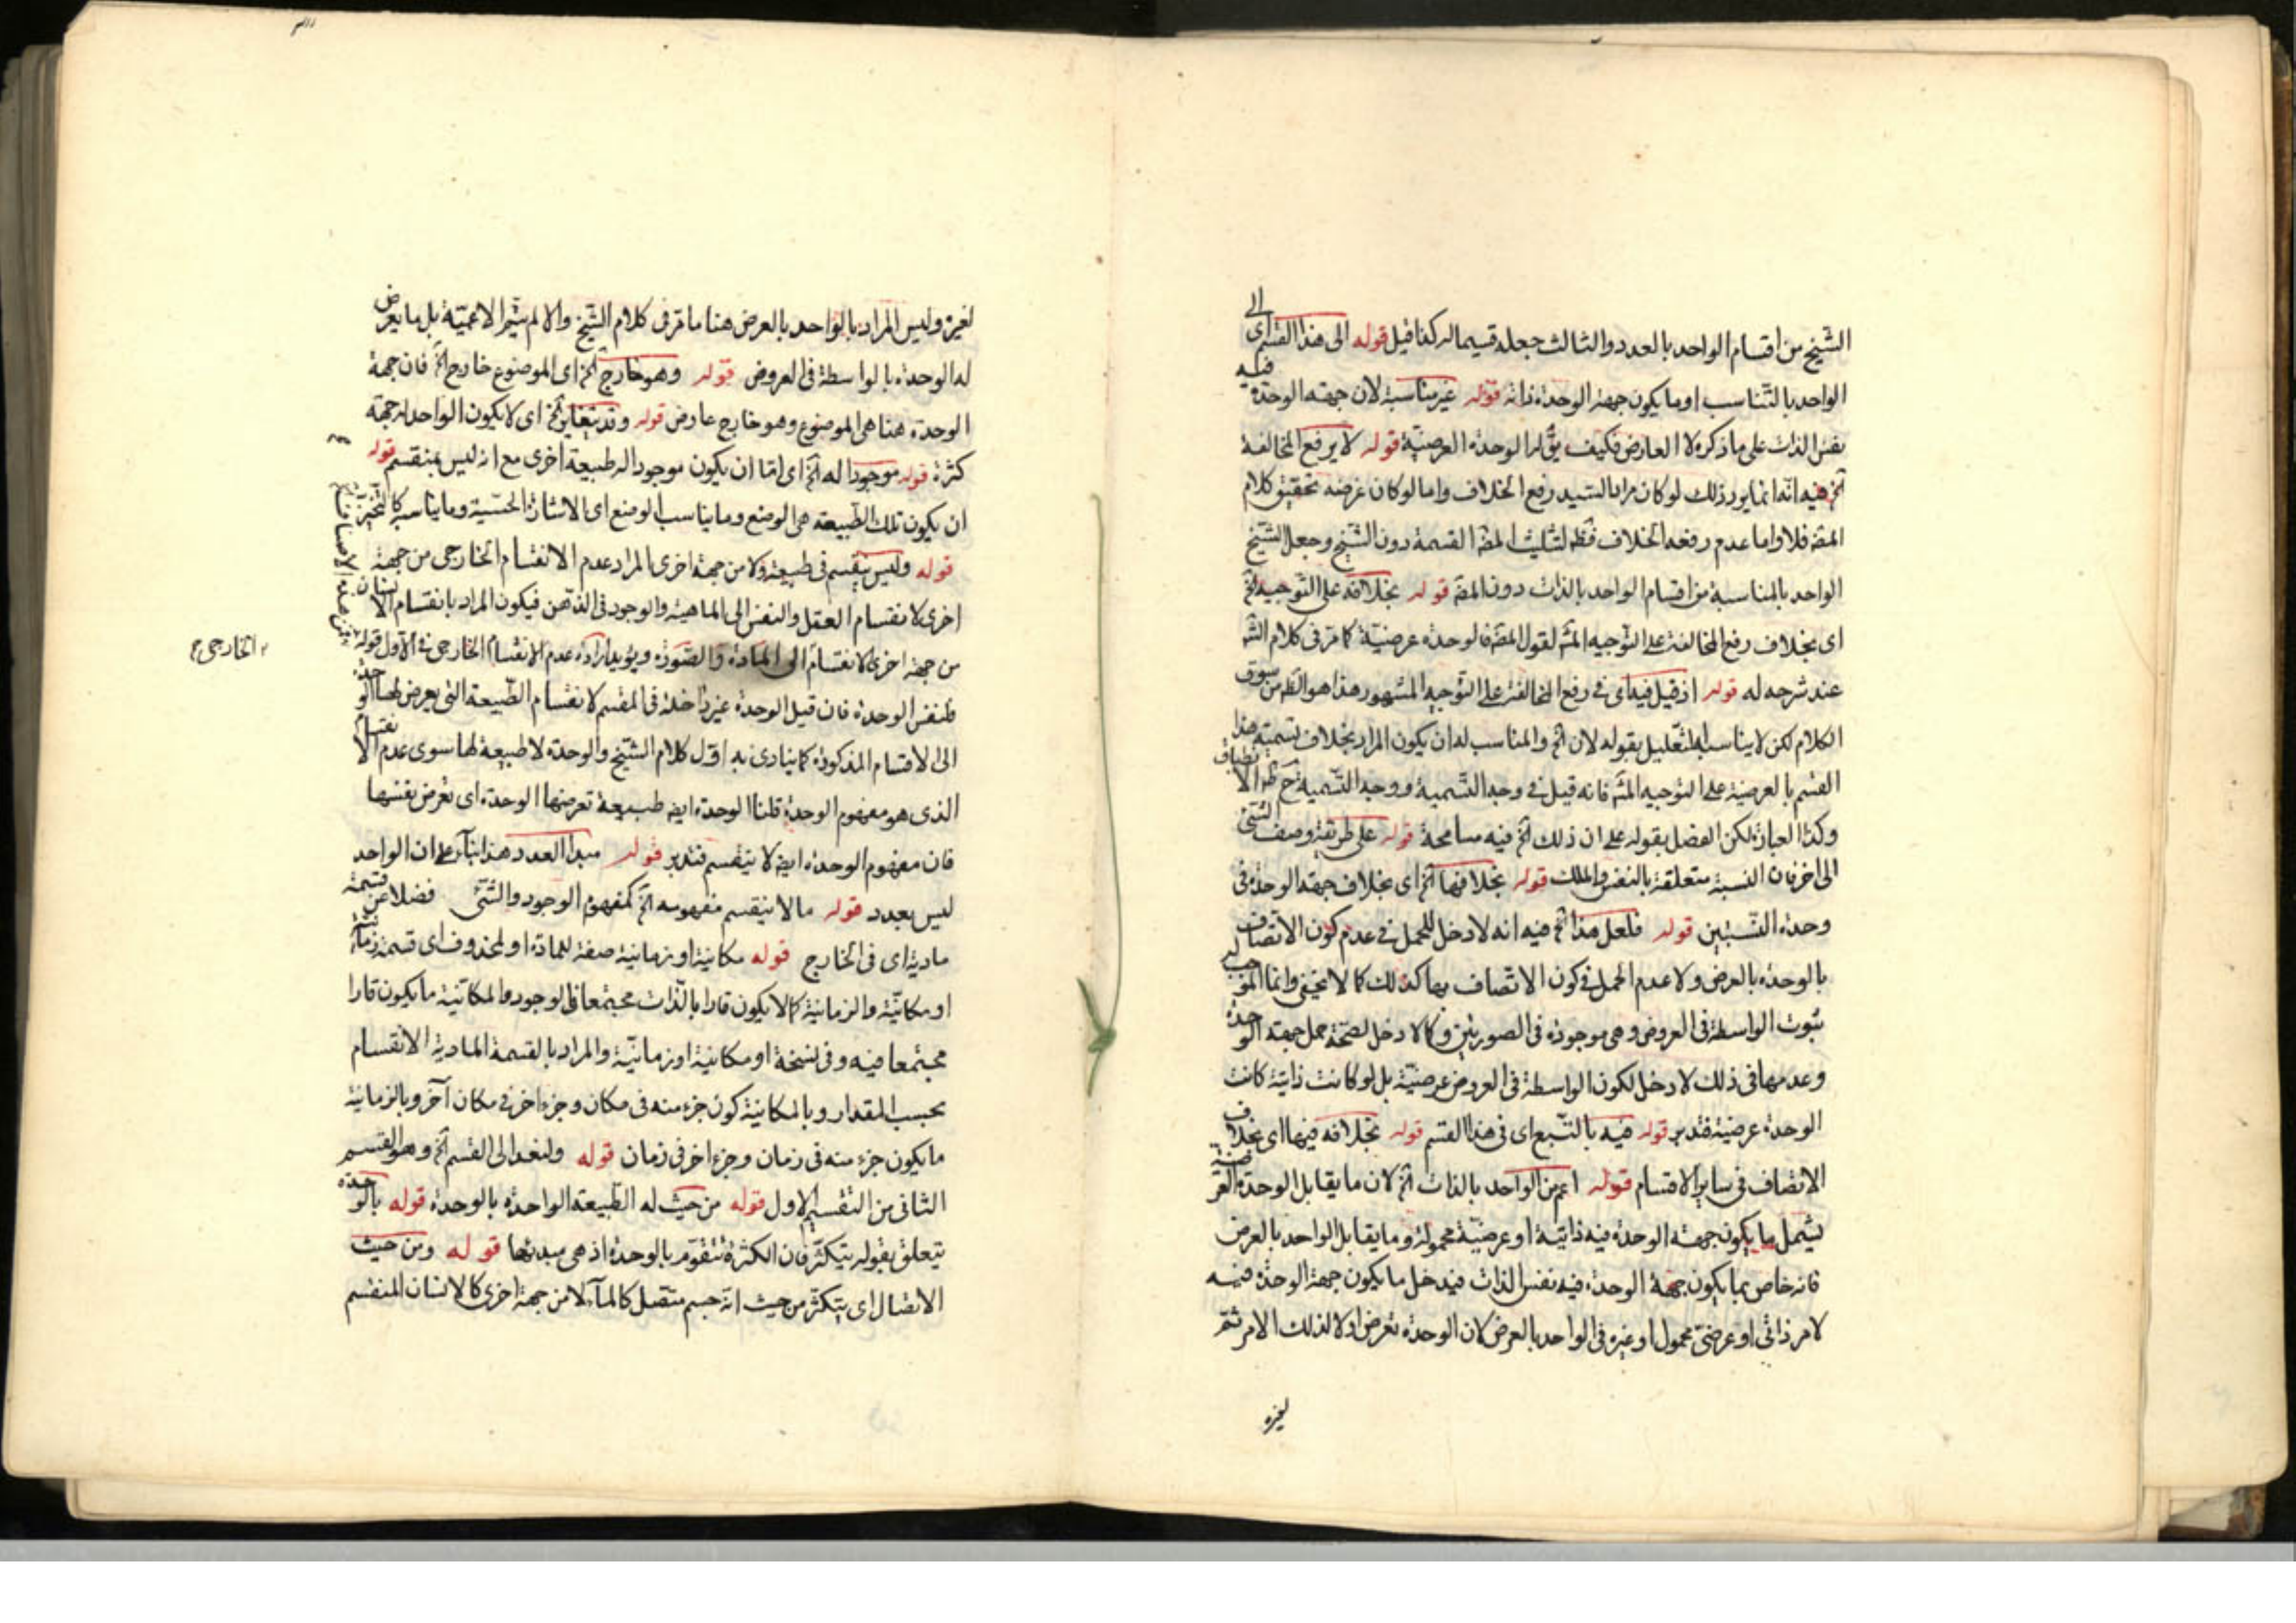 الشيخ من اقسام الواحد بالعدد والثالث جعله قسيما له كذا قيل قوله الى هذا القسم اى
الواحد بالتناسب او ما يكون جهة الوحدة ذاته قوله غير مناسبة لان جهة الوحدة فيه
نفس الذات على ما ذكره لا العارض فكيف يؤل الوحدة العرضية قوله لا يرفع المخالفة
الخ فيه انه انما يرد ذلك لو كان مراد السيد رفع الخلاف واما لو كان غرضه تحقيق كلام
المص فلا واما عدم رفعه الخلاف فظ لتثليث المص القسمة دون الشيخ وجعل الشيخ
الواحد بالمناسبة من اقسام الواحد بالذات دون المص قوله بخلافه على التوجيه الخ
اى بخلاف رفع المخالفة على التوجيه المش لقول المص فالوحدة عرضية كما مر فى كلام الش
عند شرحه له قوله اذ قيل فيه اى فى رفع المخالفة على التوجيه المشهور هذا هو الظ من سوق
الكلام لكن لا يناسبه التعليل بقوله لان الخ والمناسب له ان يكون المراد بخلاف تسمية هذا
القسم بالعرضية على التوجيه المش فانه قيل فى وجه التسمية ووجه التسمية ح ظ الانطباق
وكذا العبارة لكن الفصل بقوله على ان ذلك الخ فيه مسامحة قوله على طريقة وصف الشئ
الى اخر فان النسبة متعلقة بالنفس والملك قوله بخلافها الخ اى بخلاف جهة الوحدة فى
وحدة النسبتين قوله فلعل هذا الخ فيه انه لا دخل للحمل فى عدم كون الاتصاف
بالوحدة بالعرض ولا عدم الحمل فى كون الاتصاف بها كذلك كما لا يخفى وانما الموجب له
ثبوت الواسطة فى العروض وهى موجودة فى الصورتين وكما لا دخل لصحة حمل جهة الوحدة
وعدمها فى ذلك لا دخل لكون الواسطة فى العروض عرضية بل لو كانت ذاتية كانت
الوحدة عرضية فتدبر قوله فيه بالتبع اى فى هذا القسم قوله بخلافه فيها اى بخلاف
الاتصاف فى ساير الاقسام قوله اعم من الواحد بالذات الخ لان ما يقابل الوحدة العرضية
يشمل ما يكون جهة الوحدة فيه ذاتية او عرضية محمولة وما يقابل الواحد بالعرض
فانه خاص بما يكون جهة الوحدة فيه نفس الذات فيدخل ما يكون جهة الوحدة فيه
لامر ذاتى او عرضى محمول او غيره فى الواحد بالعرض لان الوحدة تعرض اولا لذلك الامر ثم
لغيره
لغيره وليس المراد بالواحد بالعرض هنا ما مر فى كلام الشيخ والا لم يتم الاعمية بل ما يعرض
له الوحدة بالواسطة فى العروض قوله وهو خارج الخ اى الموضوع خارج الخ فان جهة
الوحدة هنا هى الموضوع وهو خارج عارض قوله وقد يتغاير الخ اى لا يكون الواحد من جهة
كثرة قوله موجودا له الخ اى اما ان يكون موجودا له طبيعة اخرى مع انه ليس بمنقسم قوله
ان يكون تلك الطبيعة هى الوضع وما يناسب الوضع اى الاشارة الحسية وما يناسبه كالتحيز
قوله وليس ينقسم فى طبيعة ولا من جهة اخرى المراد عدم الانقسام الخارجى من جهة
اخرى كانقسام العقل والنفس الى الماهية والوجود فى الذهن فيكون المراد بانقسام الانسان
من جهة اخرى كانقسام الى المادة والصورة ويؤيد ارادة عدم الانقسام الخارجى فى الاول قوله
الخارجى
فلنفس الوحدة فان قيل الوحدة غير داخلة فى المقسم لانقسام الطبيعة التى يعرض لها الوحدة
الى الاقسام المذكورة كما ينادى به اول كلام الشيخ والوحدة لا طبيعة لها سوى عدم الانقسام
الذى هو مفهوم الوحدة قلنا الوحدة ايض طبيعة تعرضها الوحدة اى تعرض نفسها
فان مفهوم الوحدة ايض لا ينقسم فتدبر قوله مبدا العدد هذا بناء على ان الواحد
ليس بعدد قوله ما لا ينقسم مفهومه الخ كمفهوم الوجود والشئ فضلا عن قسمة
مادية اى فى الخارج قوله مكانية او زمانية صفة للمادة او لمحذوف اى قسمة زمانية
او مكانية والزمانية كما لا يكون قارا بالذات مجتمعا فى الوجود والمكانية ما يكون قارا
مجتمعا فيه وفى نسخة او مكانية او زمانية والمراد بالقسمة المادية الانقسام
بحسب المقدار وبالمكانية كون جزء منه فى مكان وجزء اخر فى مكان آخر وبالزمانية
ما يكون جزء منه فى زمان وجزء اخر فى زمان قوله ولنعد الى القسم الخ وهو القسم
الثانى من التقسيم الاول قوله من حيث له الطبيعة الواحدة بالوحدة قوله بالوحدة
يتعلق بقوله يتكثر فان الكثرة تتقوم بالوحدة اذ هى مبدئها قوله ومن حيث
الاتصال اى يتكثر من حيث انه جسم متصل كالماء لا من جهة اخرى كالانسان المنقسم